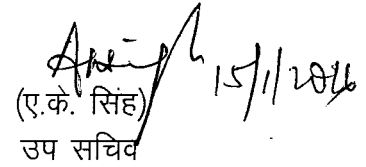 15/1/2016
(ए.के. सिंह)
उप सचिव